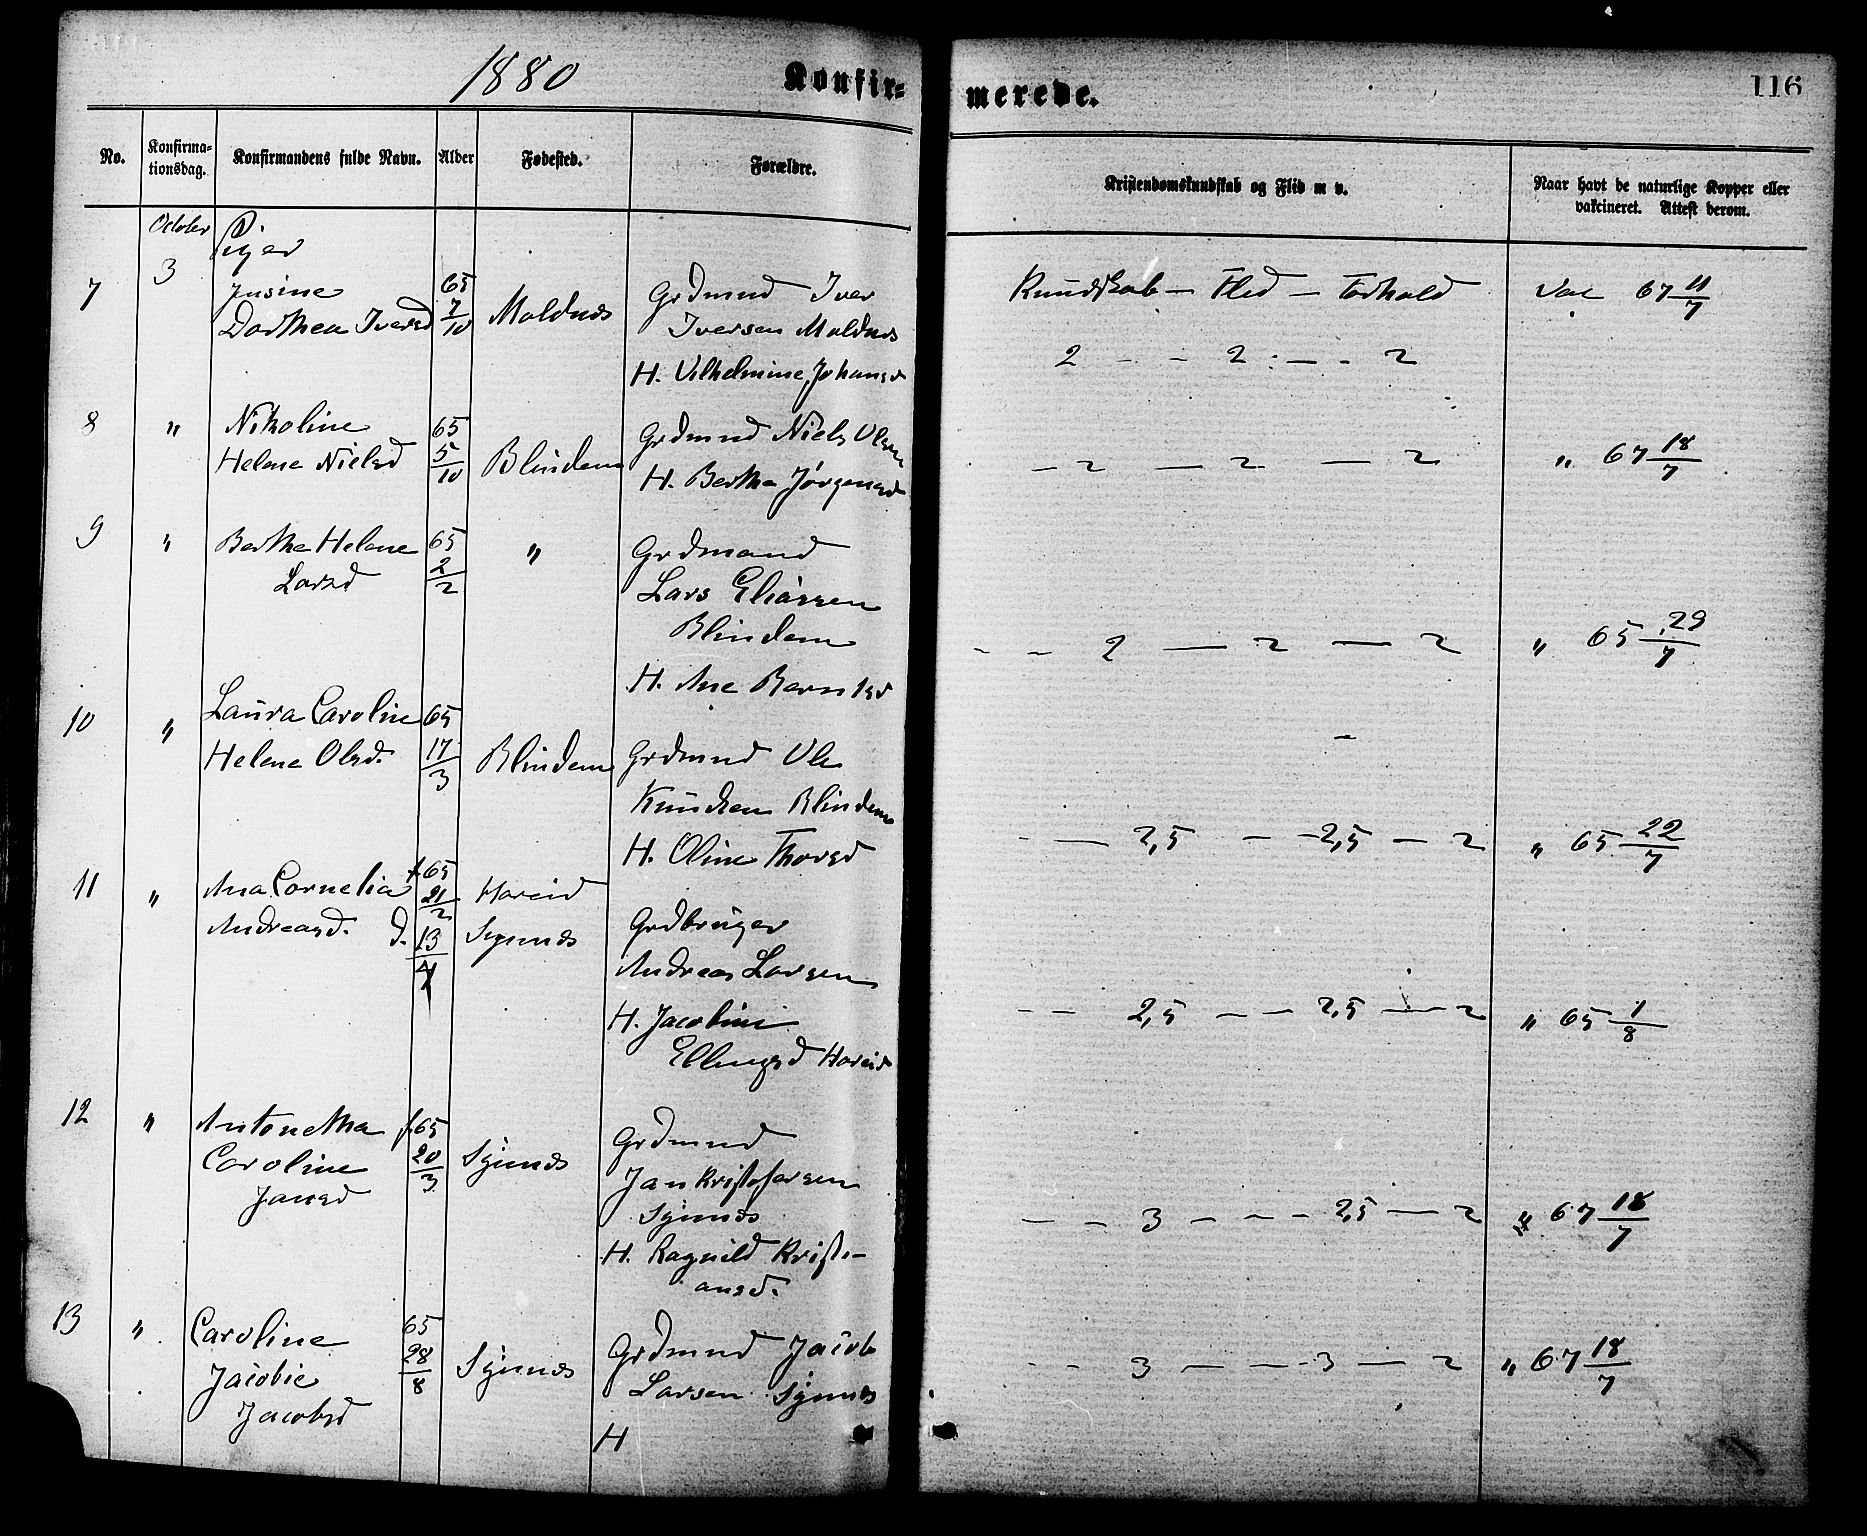 1880
Konfir-
merede.
116
No.
Konfirma-
tionsdag.
Konfirmandens fulde Navn.
Alder
Fødested.
Forældre.
Kristendomskundskab og Flid m v.
Naar havt de naturlige Kopper eller
vakcineret. Attest derom.
October
3
Piger
7
Jusine
Dorthea Iversd
65
7/10
Moldnes
Grdmnd Iver
Iversen Moldnes
H. Vilhelmine Johansd
Kundskab — Flid — Forhold
2 - - 2 - — - 2
Vac 67 11/7
8
"
Nikoline
Helene Nielsd
65
5/10
Blindem
Grdmnd Niels Olsen
H. Berthe Jørgensd
- 2 — 2 — 2
" 67 18/7
9
"
Berthe Helene
Larsd
65
2/2
"
Grdmand
Lars Eliassen
Blindem
H. Ane Berntsd
- - 2 — 2 — 2
" 65 29/7
10
"
Laura Caroline
Helene Olsd.
65
17/3
Blindem
Grdmnd Ole
Knudsen Blindem
H. Oline Thorsd
- — 2,5 — 2,5 — 2
" 65 22/7
11
"
Ana Cornelia
Andreasd.
f. 65
21/2
d. 13/4
Hareid
Synnes
Grdbruger
Andreas Larsen
H. Jacobine
Ellingsd Hareid
- - 2,5 - - 2,5 — 2
" 65 1/8
12
"
Antonetha
Caroline
Jansd
f. 65
20/3
Synnes
Grdmnd
Jan Kristofersen
Synnes
H. Ragnild Kristi-
ansd.
- - 3 - - - 2,5 — 2
" 67 18/7
13
"
Caroline
Jacobie
Jacobsd
65
28/8
Synnes
Grdmnd Jacob
Larsen Synnes
H
- - 3 — - 3 — 2
" 67 18/7